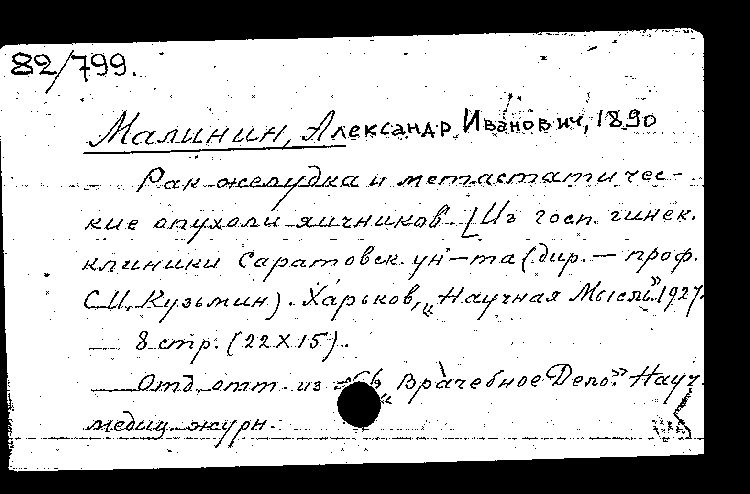 82/799.
Малинин, Александр Иванович, 1890
Рак желудка и метастатичес-
кие опухоли яичников. [Из госп. гинек.
клиники Саратовск. ун-та (дир. — проф.
С.И. Кузьмин). Харьков, „Научная Мысль", 1927.
— 8 стр. (22X15).
— Отд. отт. из „Врачебное Дело." Науч.
медиц. журн.